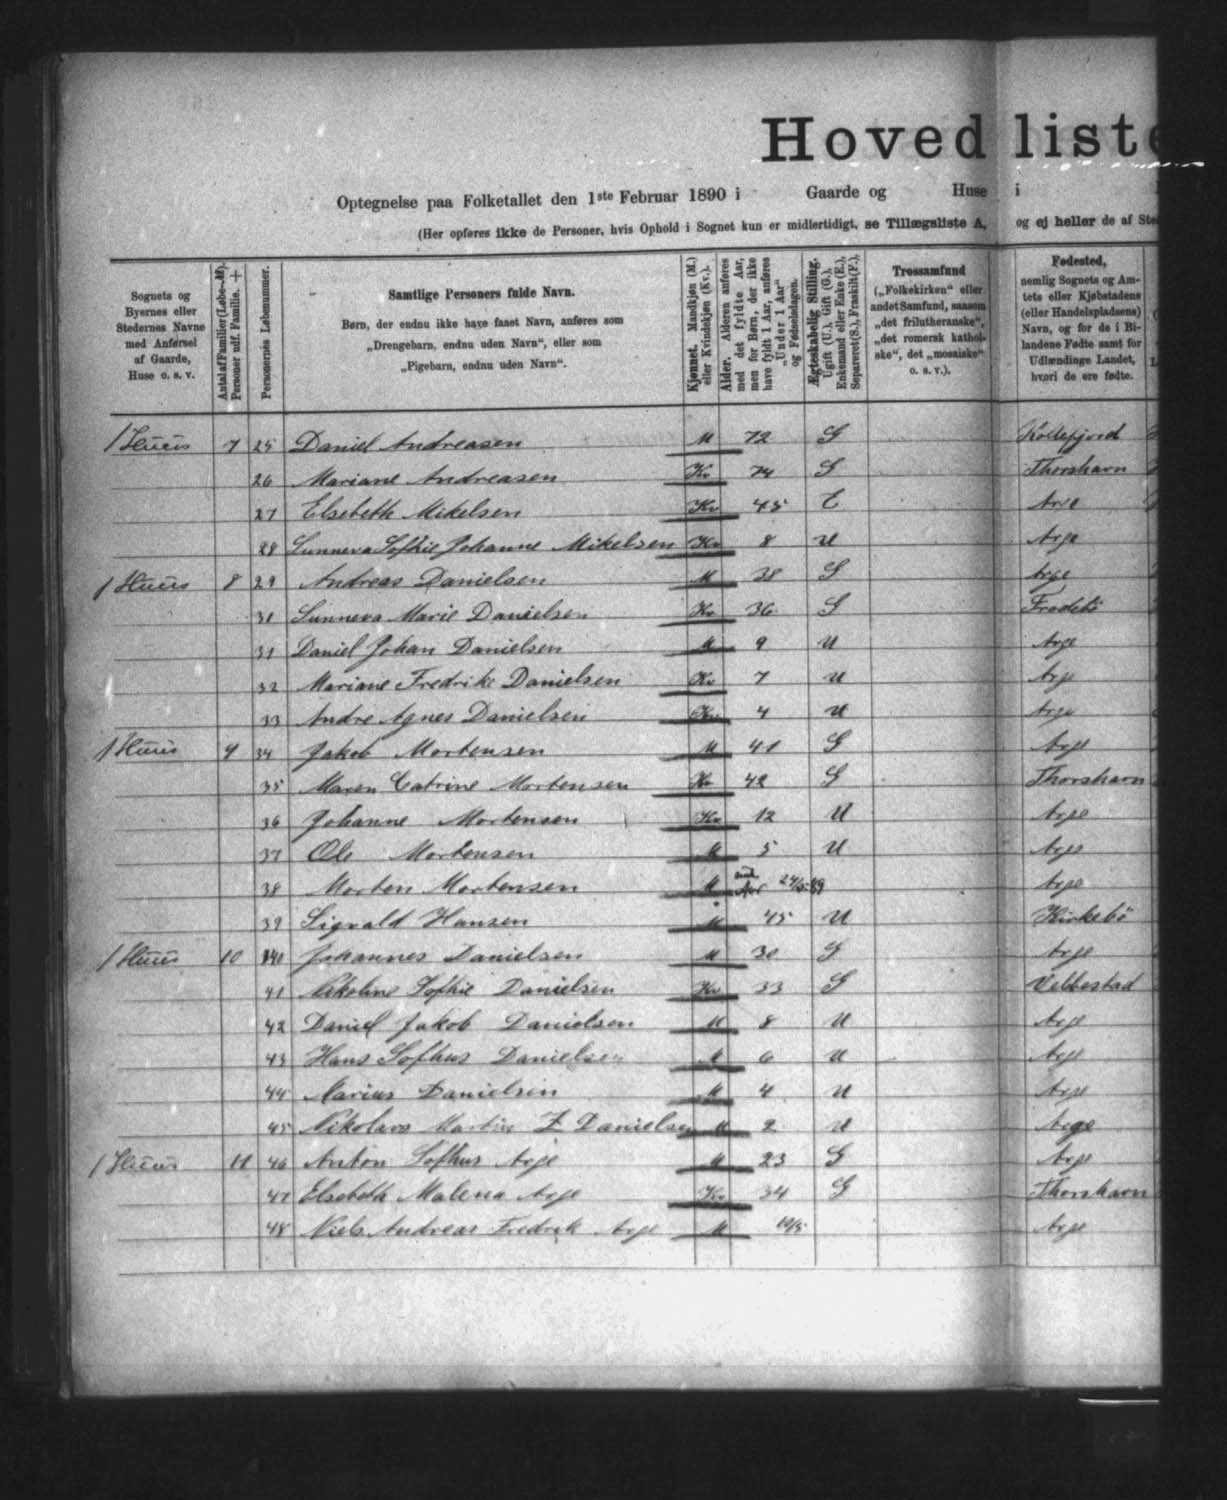 Hovedliste
Optegnelse paa Folketallet den 1ste Februar 1890 i Gaarde og Huse i
(Her opføres ikke de Personer, hvis Ophold i Sognet kun er midlertidigt, se Tillægsliste A, og ej heller de af
Sognets og Byernes eller Stedernes Navne med Anførsel af Gaarde, Huse o. s. v.
Antal af Familier (Løbe-№). Personer udf. Familie. +
Personernes Løbenummer.
Samtlige Personers fulde Navn.
Børn, der endnu ikke have faaet Navn, anføres som
„Drengebarn, endnu uden Navn“, eller som
„Pigebarn, endnu uden Navn“.
Kjønnet. Mandkjøn (M.) eller Kvindekjøn (Kv.).
Alder. Alderen anføres med det fyldte Aar, men for Børn, der ikke have fyldt 1 Aar, anføres „Under 1 Aar“ og Fødselsdagen.
Ægteskabelig Stilling. Ugift (U.), Gift (G.), Enkemand eller Enke (E.), Separeret (S.), Fraskilt (F.).
Trossamfund
(„Folkekirken“ eller andet Samfund, saasom „det frilutheranske“, „det romersk katholske“, det „mosaiske“ o. s. v.).
Fødested,
nemlig Sognets og Amtets eller Kjøbstadens (eller Handelspladsens) Navn, og for de i Bilandene Fødte samt for Udlændinge Landet, hvori de ere fødte.
1 Huus 7 25 Daniel Andreasen M 72 G Kollefjord
26 Mariane Andreasen Kv 74 G Thorshavn
27 Elsebeth Mikelsen Kv 45 E Arge
28 Sunneva Sofhie Johanne Mikelsen Kv 8 U Arge
1 Huus 8 29 Andreas Danielsen M 38 G Arge
30 Sunneva Marie Danielsen Kv 36 G
31 Daniel Johan Danielsen M 9 U Arge
32 Mariane Fredrike Danielsen Kv 7 U Arge
33 Andre Agnes Danielsen Kv 4 U Arge
1 Huus 9 34 Jakob Mortensen M 41 G Arge
35 Maren Catrine Mortensen Kv 42 G Thorshavn
36 Johanne Mortensen Kv 12 U Arge
37 Ole Mortensen M 5 U Arge
38 Morten Mortensen M Arge
39 Sigvald Hansen M 45 U Kirkebø
1 Huus 10 40 Johannes Danielsen M 30 G Arge
41 Nikoline Sofhie Danielsen Kv 33 G Velbestad
42 Daniel Jakob Danielsen M 8 U Arge
43 Hans Sofhus Danielsen M 6 U Arge
44 Marius Danielsen M 4 U Arge
45 Nikolavs Martin Z Danielsen M 2 U Arge
1 Huus 11 46 Anton Sofhus Arge M 23 G Arge
47 Elsebeth Malena Arge Kv 34 G Thorshavn
48 Niels Andreas Fredrik Arge M 10/5 Arge